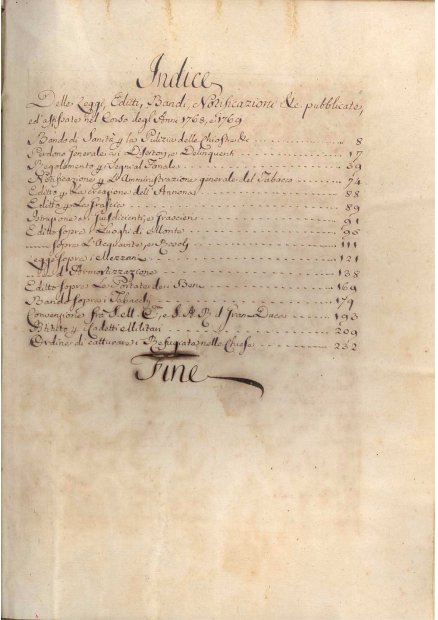 Indice
Delle Leggi, Editti, Bandi, Notificazioni &c pubblicate,
ed affissate nel Corso degl'Anni 1768, e 1769
Bando di Sanità p la Pulizia delle &c 8
Perdono Generale ai Disertori, e Delinquenti 17
Regolamento p 39
Notificazione p L'Amministrazione generale del Tabacco 74
Editto p La creazione dell'Annona 88
Editto p Le Grasce 89
Istruzione ai Giusdicenti, e Grascieri 91
Editto sopra i Luoghi di Monte 96
sopra L'Acquavite, e 111
Legge sopra i Mezzani 121
d'Ammortizzazione 138
Editto sopra Le Portate dei Beni 169
Bando sopra i Tabacchi 179
Convenzione frà S. M. e S. A. R. il Gran Duca 193
p Cadetti Militari 209
Ordine di catturare i Refugiati nelle Chiese 232
Fine